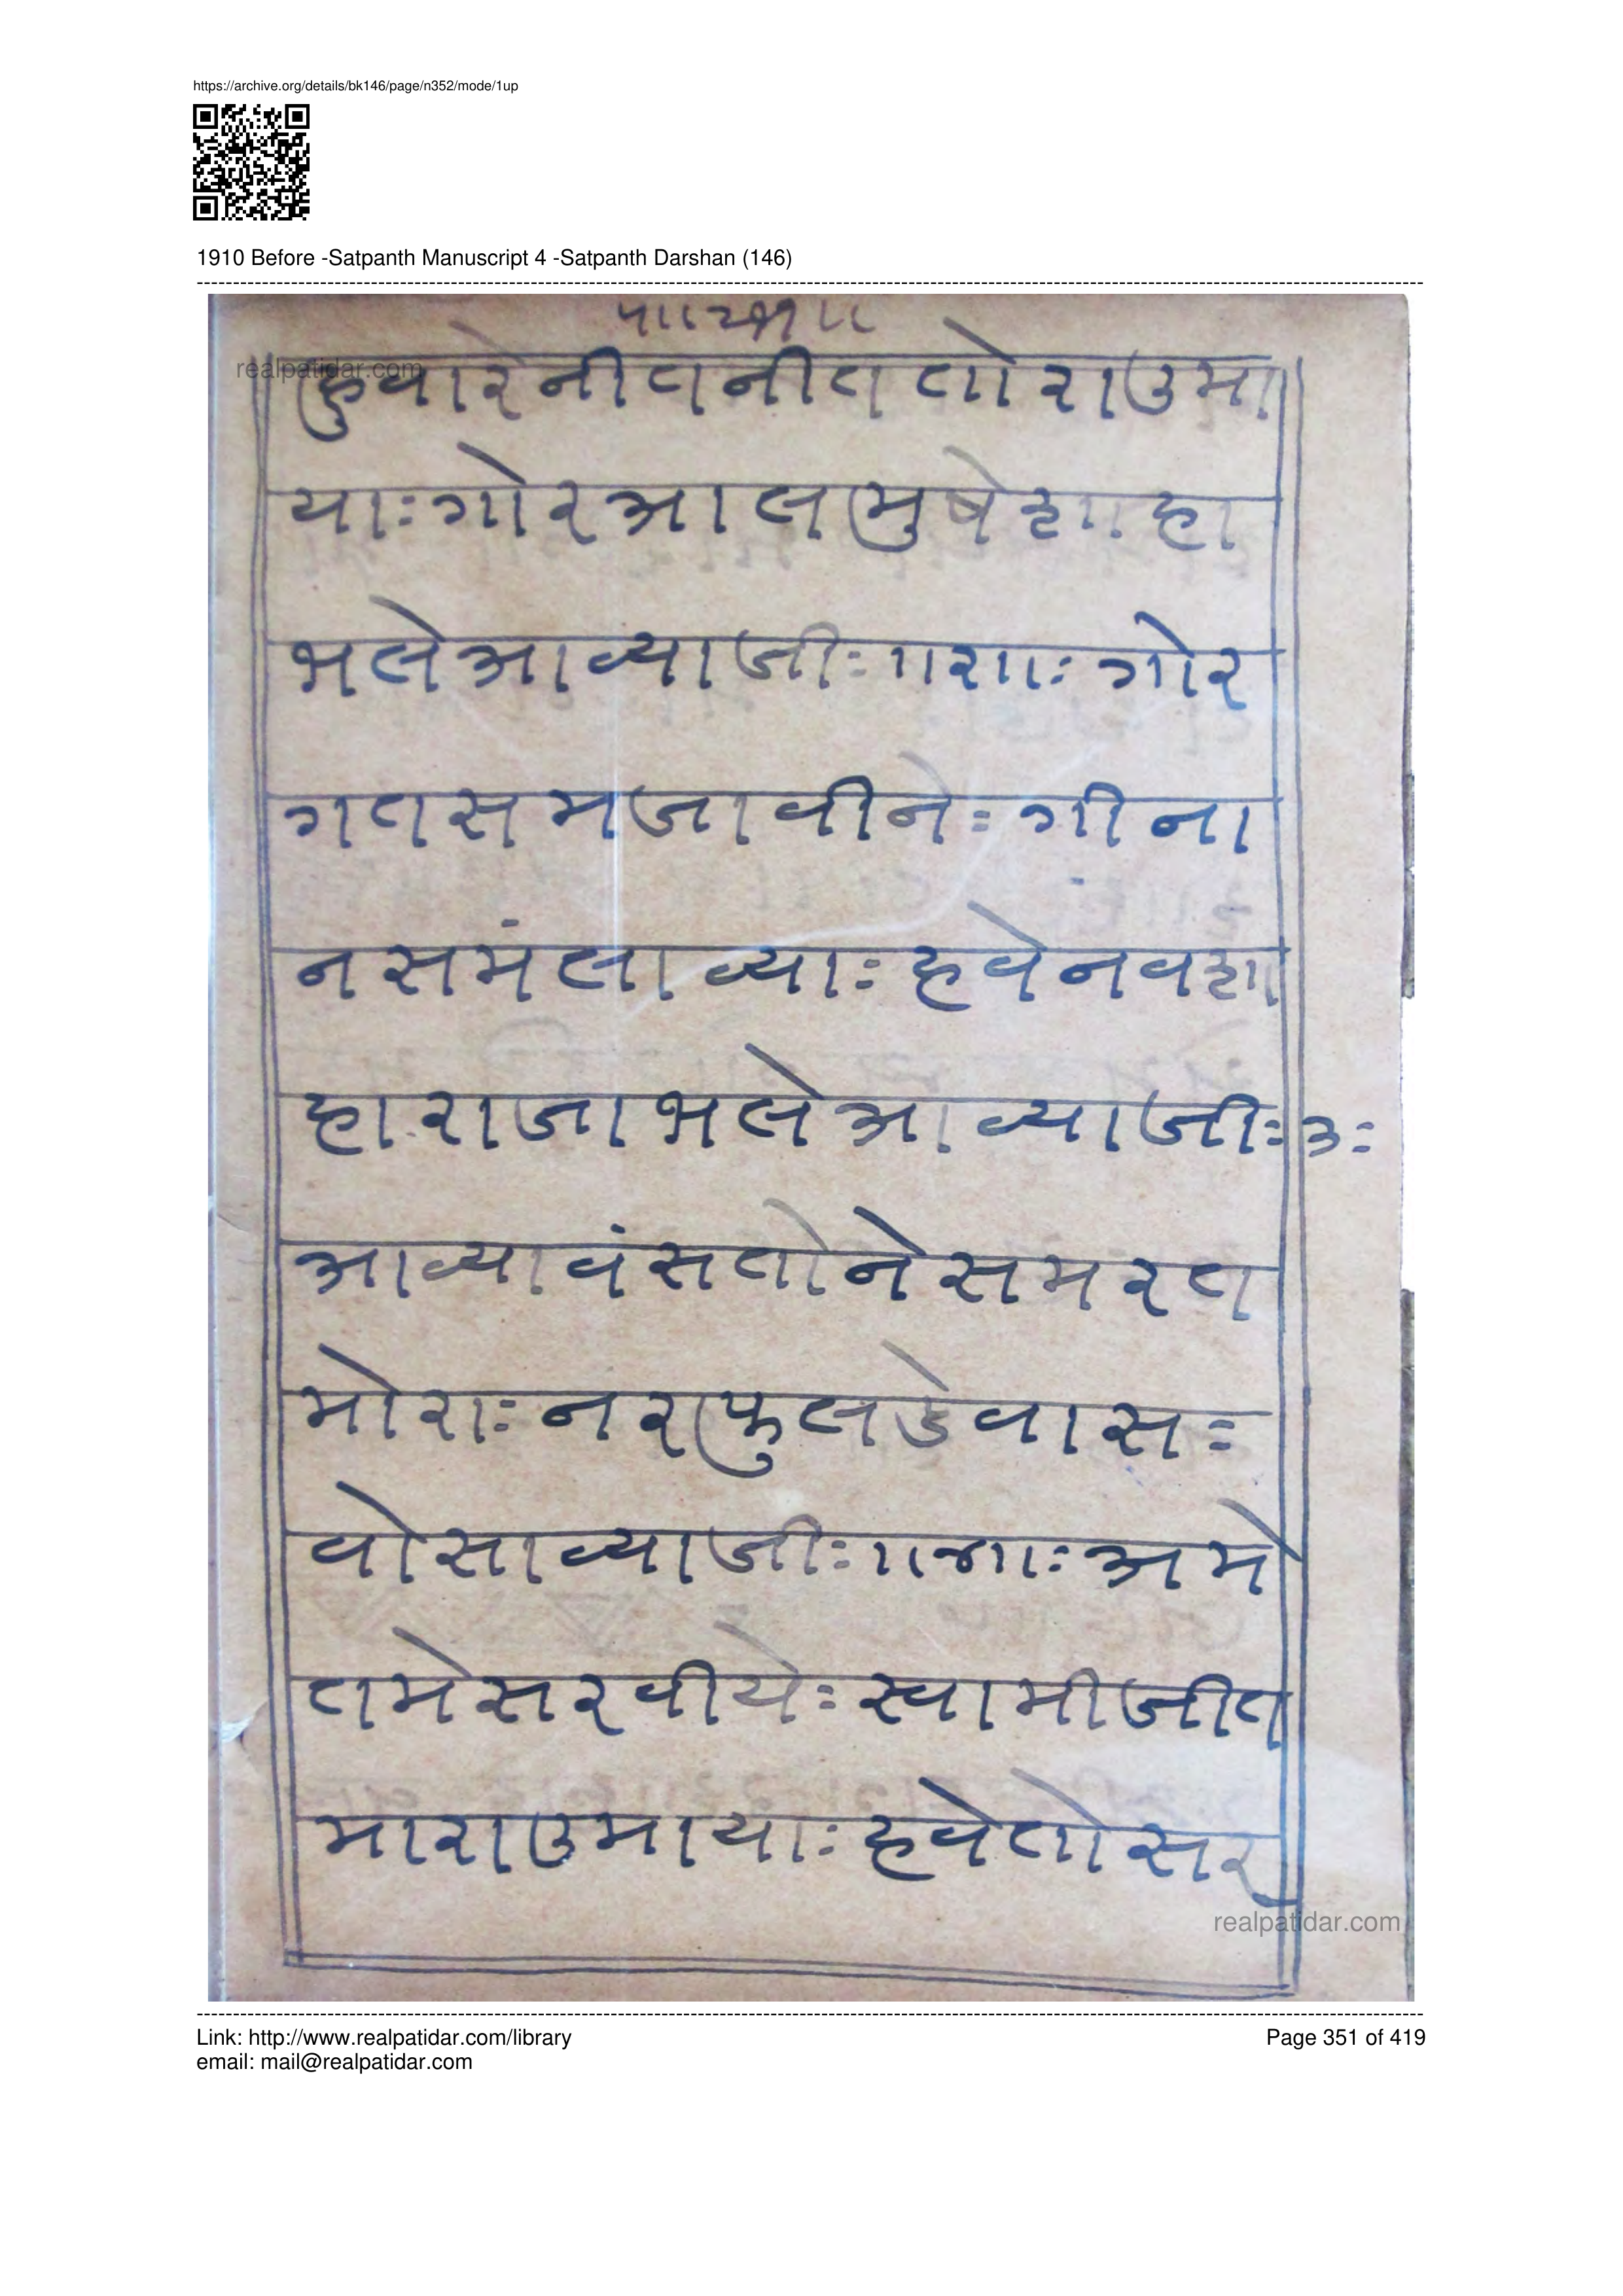 https://archive.org/details/bk146/page/n352/mode/1up
1910 Before -Satpanth Manuscript 4 -Satpanth Darshan (146)
realpatidar.com
हुवारेनीतनीत तोराउमा
याःगोरआलमुषेशाहा
भलेआव्याजीः॥२॥ः गोर
गतसमजावीनेः गीना
नसमंलाव्याः हवेनवशा
हाराजाभलेआव्याजीः३ः
आव्यावंसतोनेसमरत
मोराः नरफुलडेवासः
वोसाव्याजीः॥४॥ः अमे
तमेसरवीयेः स्वामीजीत
माराउमायाः हवेतोसर
realpatidar.com
Link: http://www.realpatidar.com/library
Page 351 of 419
email: mail@realpatidar.com